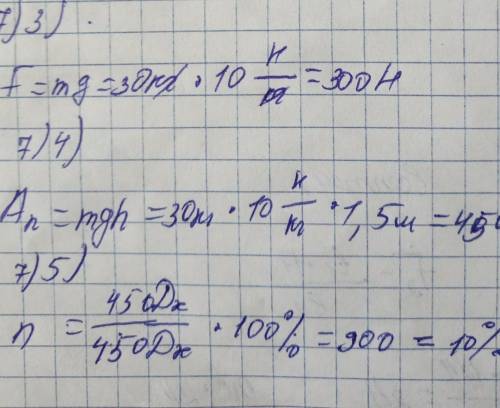 7)3)
F=mg=30кг·10 Н/кг=300Н
7)4)
Aп=mgh=30кг·10 Н/кг·1,5м=450
7)5)
n=450Дж/450Дж·100%=900=10%